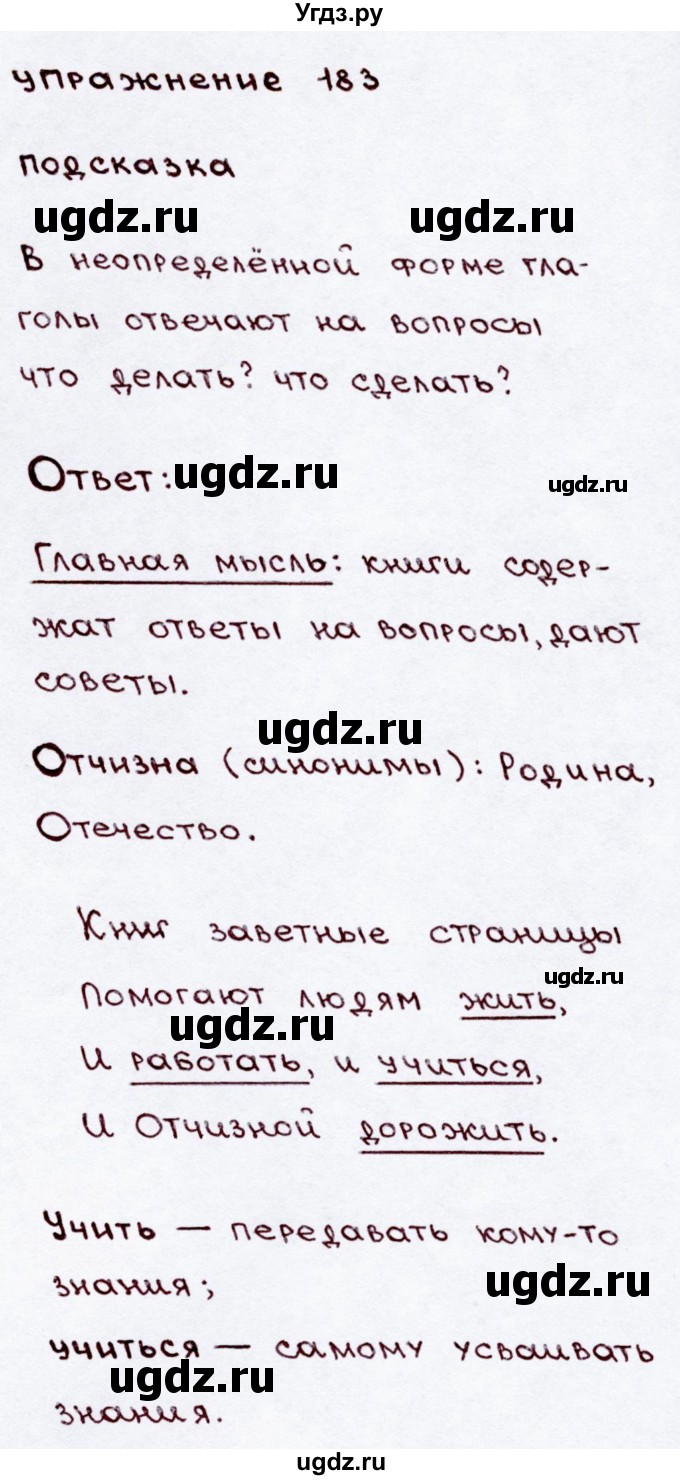 Угдз.ру
упражнение 183
подсказка
ugdz.ru ugdz.ru
В неопределённой форме гла-
голы отвечают на вопросы
что делать? что сделать?
Ответ: ugdz.ru ugdz.ru
Главная мысль: книги содер-
жат ответы на вопросы, дают
советы.
ugdz.ru
Отчизна (синонимы): Родина,
Отечество.
Книг заветные страницы
ugdz.ru
Помогают людям жить,
ugdz.ru
И работать, и учиться,
И Отчизной дорожить.
Учить — передавать кому-то
знания; ugdz.ru
учиться — самому усваивать
ugdz.ru
знания.
ugdz.ru